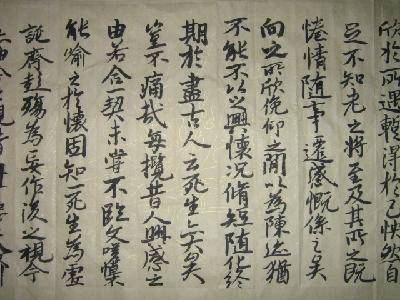 欣於所遇輒得於己怏然自
足不知老之將至及其所之既
惓情随事遷感慨係之矣
向之所欣俛仰之閒以為陳迹猶
不能不以之興懷况脩短随化終
期於盡古人云死生亦大矣
豈不痛哉每攬昔人興感之
由若合一契未嘗不臨文嗟悼
能喻之於懷固知一死生為虛
誕齊彭殤為妄作後之視今